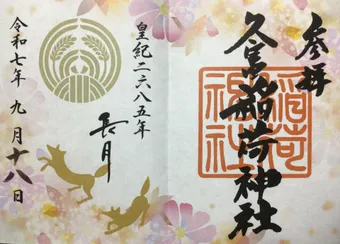 参拝
久富稲荷神社
稲荷
神社
皇紀二六八五年
長月
令和七年九月十八日